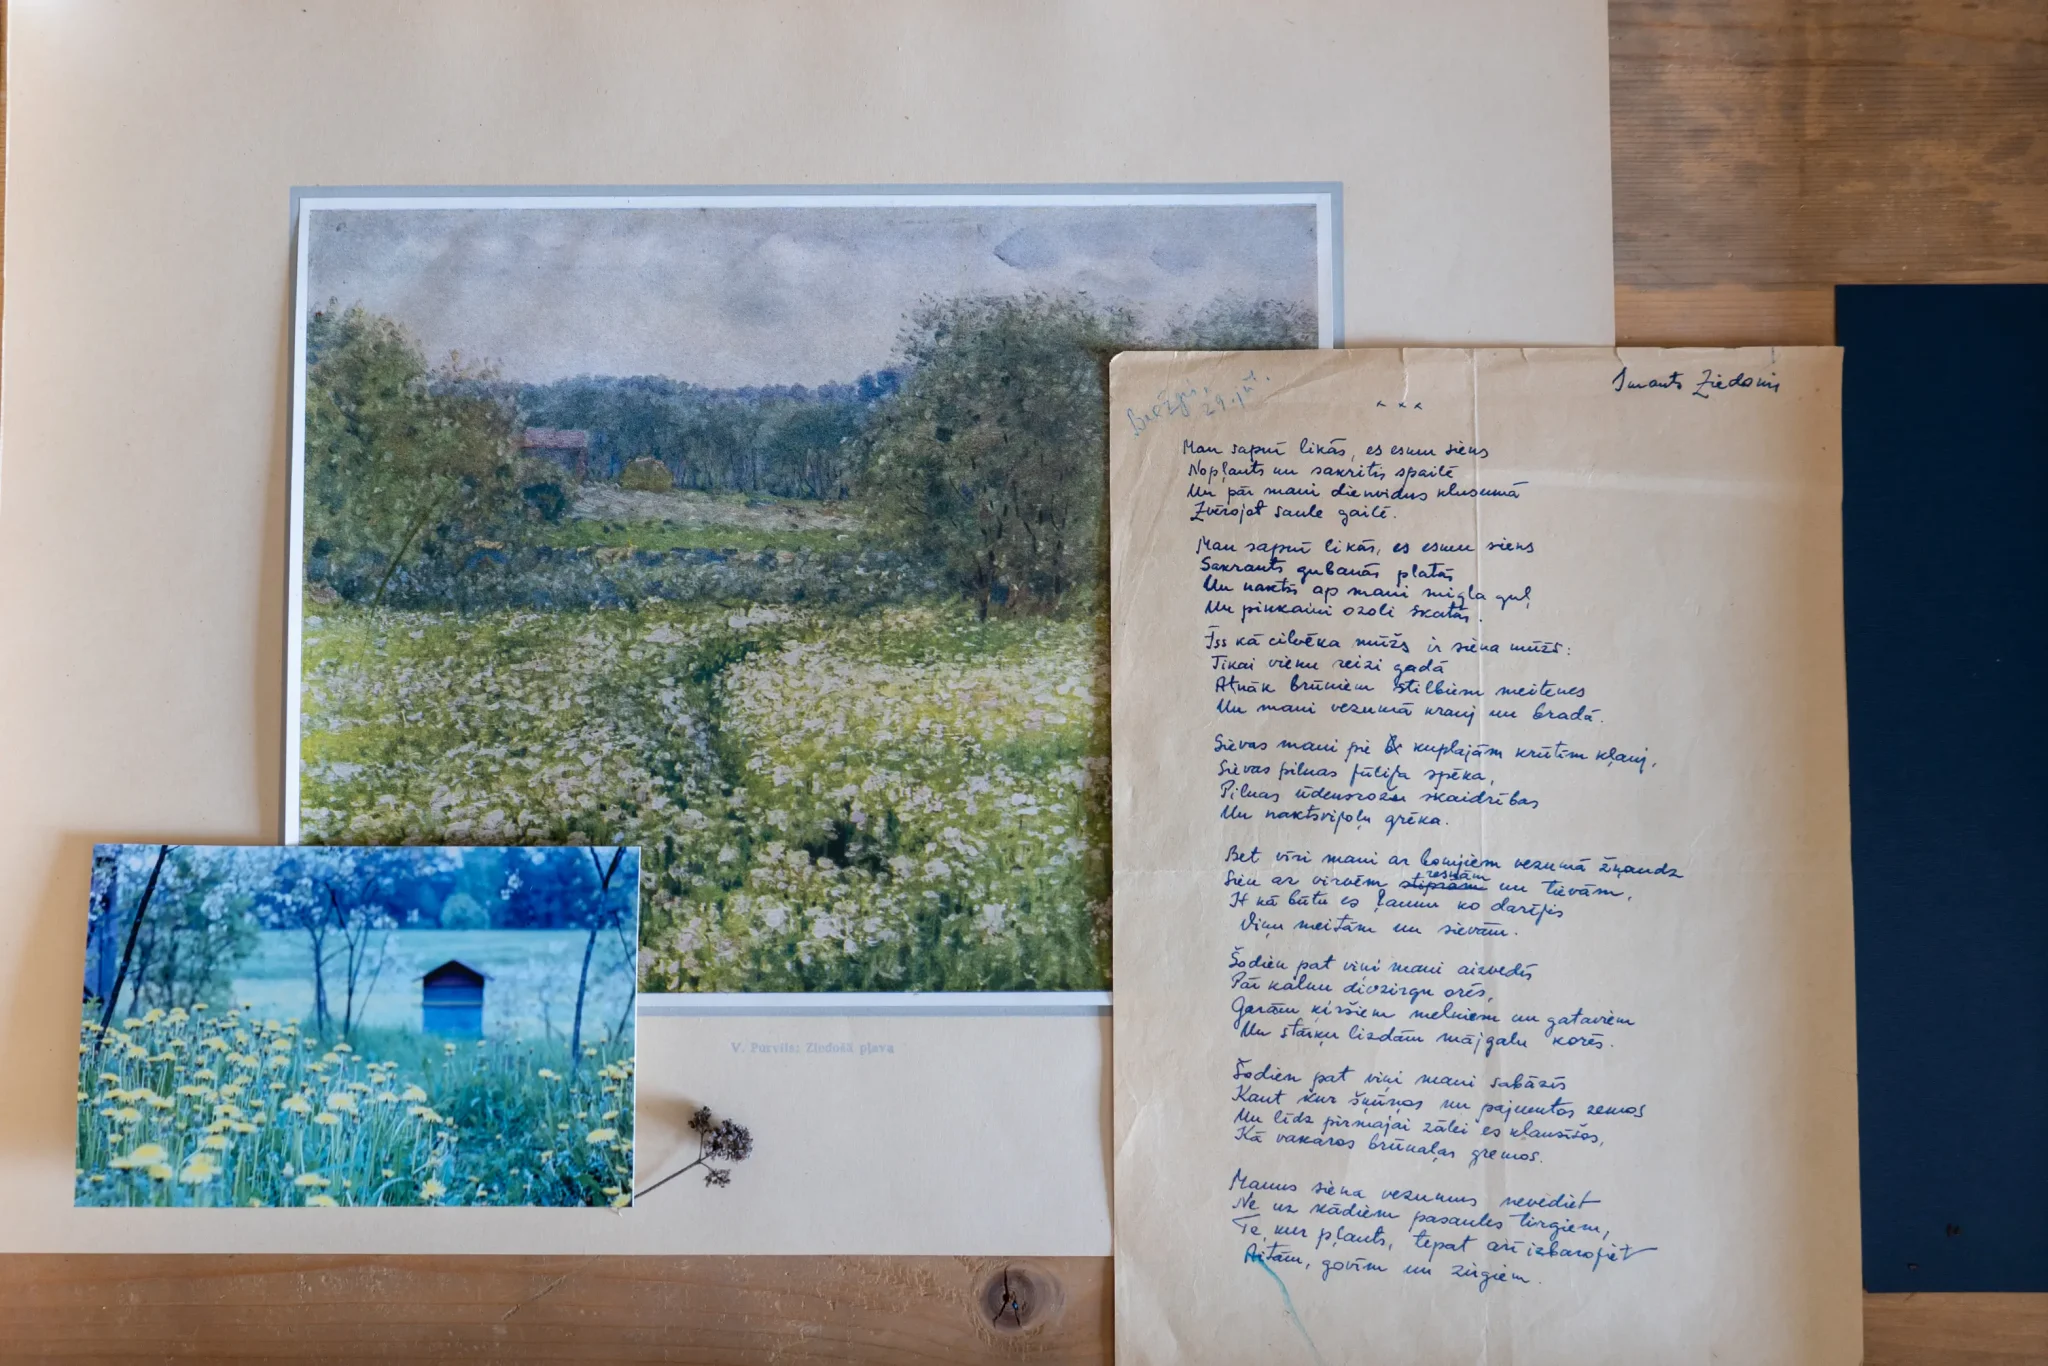 V. Purvīts: Ziedošā pļava
29. jūl.
Imants Ziedonis
× × ×
Man sapnī likās, es esmu siens
Nopļauts un sakritis spailē
Un pār mani dienvidus klusumā
Zvērojot saule gailē.
Man sapnī likās, es esmu siens
Sakrauts gubanās platās
Un naktīs ap mani migla guļ
Un pinkaini ozoli skatās.
Īss kā cilvēka mūžs ir siena mūžs:
Tikai vienu reizi gadā
Atnāk brūniem stilbiem meitenes
Un mani vezumā krauj un bradā.
Sievas mani pie kuplajām krūtīm kļauj,
Sievas pilnas jūlija spēka,
Pilnas ūdensrožu skaidrības
Un naktsvijoļu grēka.
Bet vīri mani ar bomjiem vezumā žņaudz
resnām
Sien ar virvēm stiprām un tievām,
It kā būtu es ļaunu ko darījis
Viņu meitām un sievām.
Šodien pat viņi mani aizvedīs
Pār kalnu divzirgu orēs,
Garām ķiršiem melniem un gataviem
Un stārķu lizdām mājgalu korēs.
Šodien pat viņi mani sabāzīs
Kaut kur šķūņos un pajumtos zemos
Un līdz pirmajai zālei es klausīšos,
Kā vakaros brūnaļas gremos.
Manus siena vezumus nevediet
Ne uz kādiem pasaules tirgiem,
Te, kur pļauts, tepat arī izbarojiet
Aitām, govīm un zirgiem.